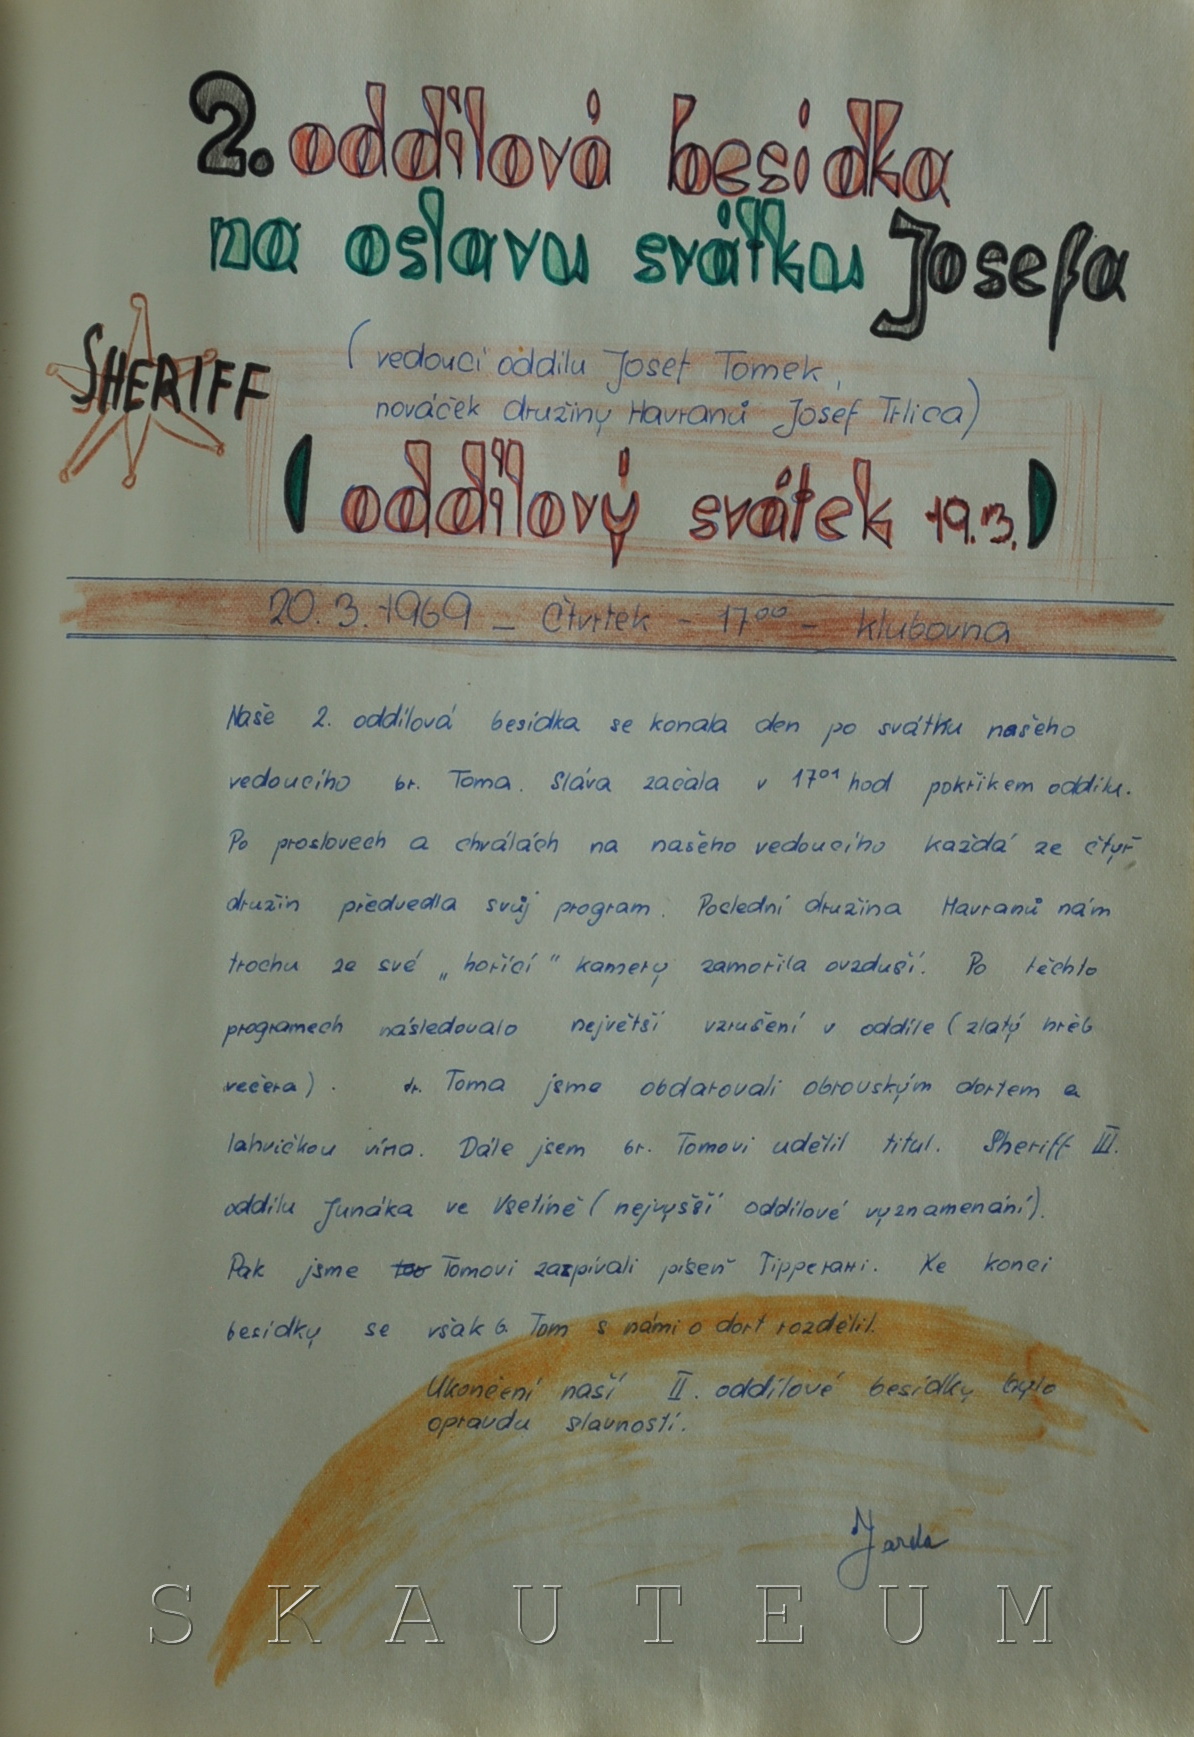 2. oddílová besídka
na oslavu svátku Josefa
SHERIFF
(vedoucí oddílu Josef Tomek,
nováček družiny Havranů Josef Trlica)
(oddílový svátek 19.3.)
20.3.1969 – Čtvrtek – 17⁰⁰ – klubovna
Naše 2. oddílová besídka se konala den po svátku našeho
vedoucího br. Toma. Sláva začala v 17⁰¹ hod pokřikem oddílu.
Po proslovech a chválách na našeho vedoucího každá ze čtyř
družin předvedla svůj program. Poslední družina Havranů nám
trochu ze své „hořící" kamery zamořila ovzduší. Po těchto
programech následovalo největší vzrušení v oddíle (zlatý hřeb
večera). Toma jsme obdarovali obrouským dortem a
lahvičkou vína. Dále jsem br. Tomovi udělil titul. Sheriff III.
oddílu Junáka ve Vsetíně (nejvyšší oddílové vyznamenání).
Pak jsme Tomovi zazpívali píseň Tipperari. Ke konci
besídky se však b. Tom s námi o dort rozdělil.
Ukončení naší II. oddílové besídky bylo
opravdu slavností.
Jarda
SKAUTEUM